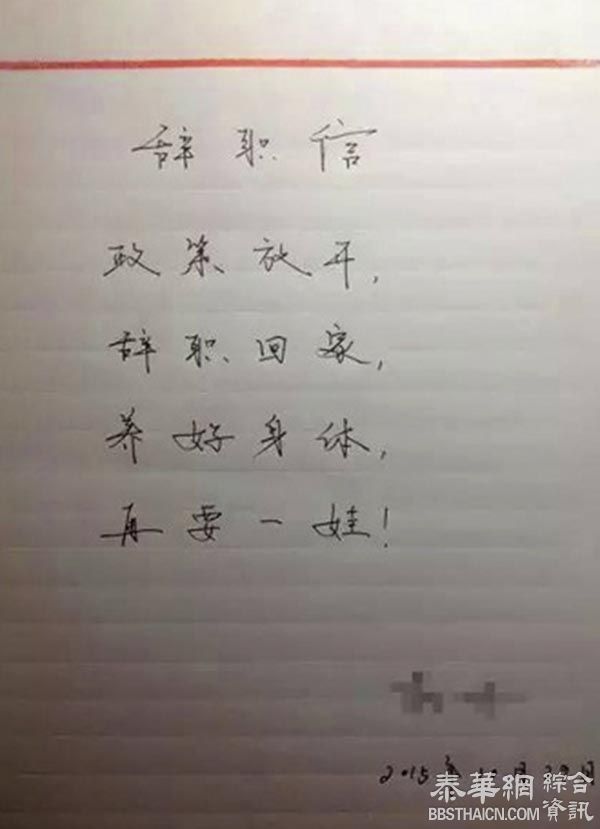 辞职信
政策放开,
辞职回家,
养好身体,
再要一娃!
2015年10月29日
泰華網 綜合資訊
BBSTHAICN.COM